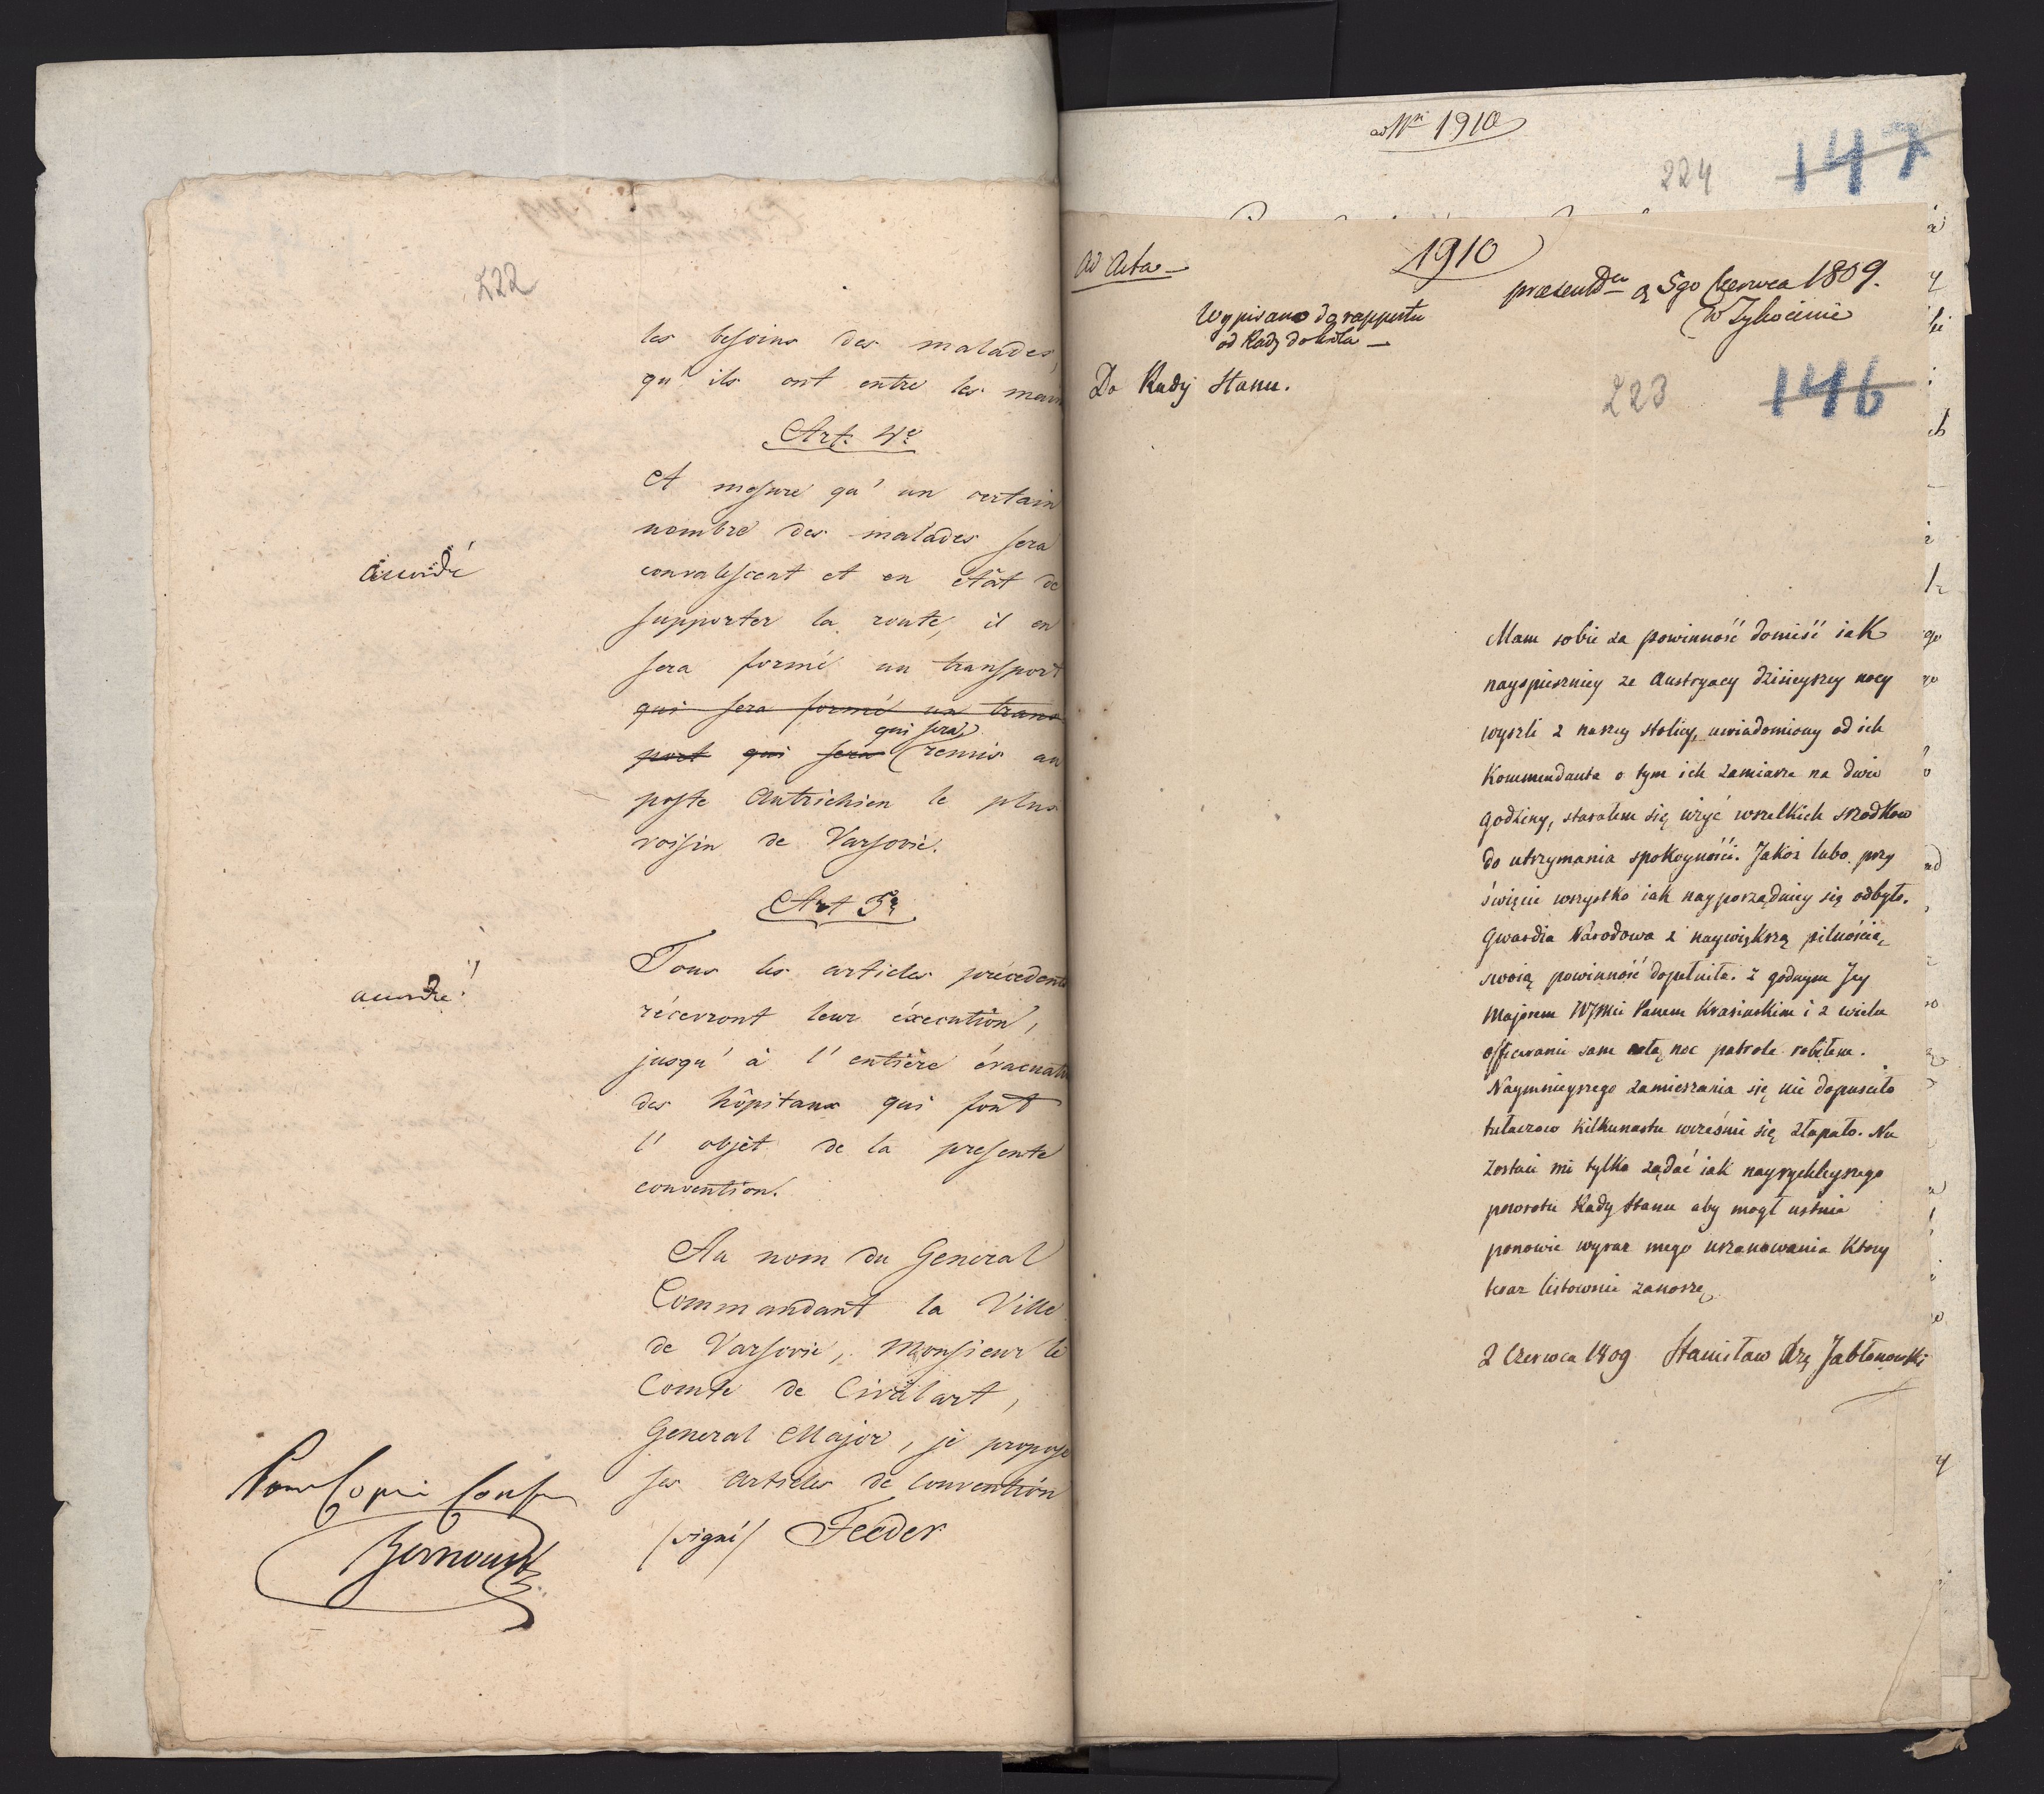 222
les besoins des malades,
qu' ils ont entre les main
Art. 4e
A mesure qu' un certain
nombre des malades sera
accordé
convalescent et en êtât de
supporter la route, il en
sera formé un transport
qui sera formé un trans
qui sera
port qui sera remis au
poste Autrichien le plus
voisin de Varsovie.
Art 5e
Tous les articles précedents
accordé
récevront leur éxecution,
jusqu' à l' entière évacuatio
des hôpitaux qui font
l' objèt de la presente
convention.
Au nom du General
Commandant la Ville
de Varsovie, Monsieur le
Comte de Civalart,
General Major, je propose
ses articles de convention
/signé/ Feeder
Pour Copie Conf
ad Nri 1910
224 147
Ad Acta
1910
præsent 5go Czerwca 1809.
w Tykocinie
Wypisano do rapportu
od Rady do Króla
Do Rady Stanu.
223 146
Mam sobie za powinność donieść iak
nayspieszniey ze Austryacy dzisieyszey nocy
wyszli z naszey stolicy, uwiadomiony od ich
Kommendanta o tym ich zamiarze na dwie
godziny, starałem się użyć wszelkich srzodkow
do utrzymania spokoyności. Jakoż lubo przy
święcie wszystko iak nayporządniey się odbyło.
Gwardia Narodowa z naywiększą pilnością
swoią powinność dopełniła. z godnym Jey
Majorem WJMci Panem Krasinskim i z wielu
officerami sam całą noc patrole robiłem.
Naymnieyszego zamieszania się nie dopusciło
tułaczow kilkunastu wcześnie się złapało. Nie
zostaie mi tylko żądać iak nayrychleyszego
powrotu Rady Stanu aby mogł ustnie
ponowić wyraz mego uszanowania Ktory
teraz listownie zanoszę
2 Czerwca 1809 Stanisław Xże Jabłonowski